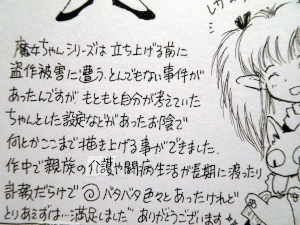 魔女ちゃんシリーズは立ち上げる前に
盗作被害に遭う、とんでもない事件が
あったんですが もともと自分が考えていた
ちゃんとした設定などがあったお陰で
何とかここまで描き上げる事ができました。
作中で親族の介護や闘病生活が長期に渡ったり
訃報だらけで バタバタ色々とあったけれど
とりあえずは…満足しました ありがとうございます